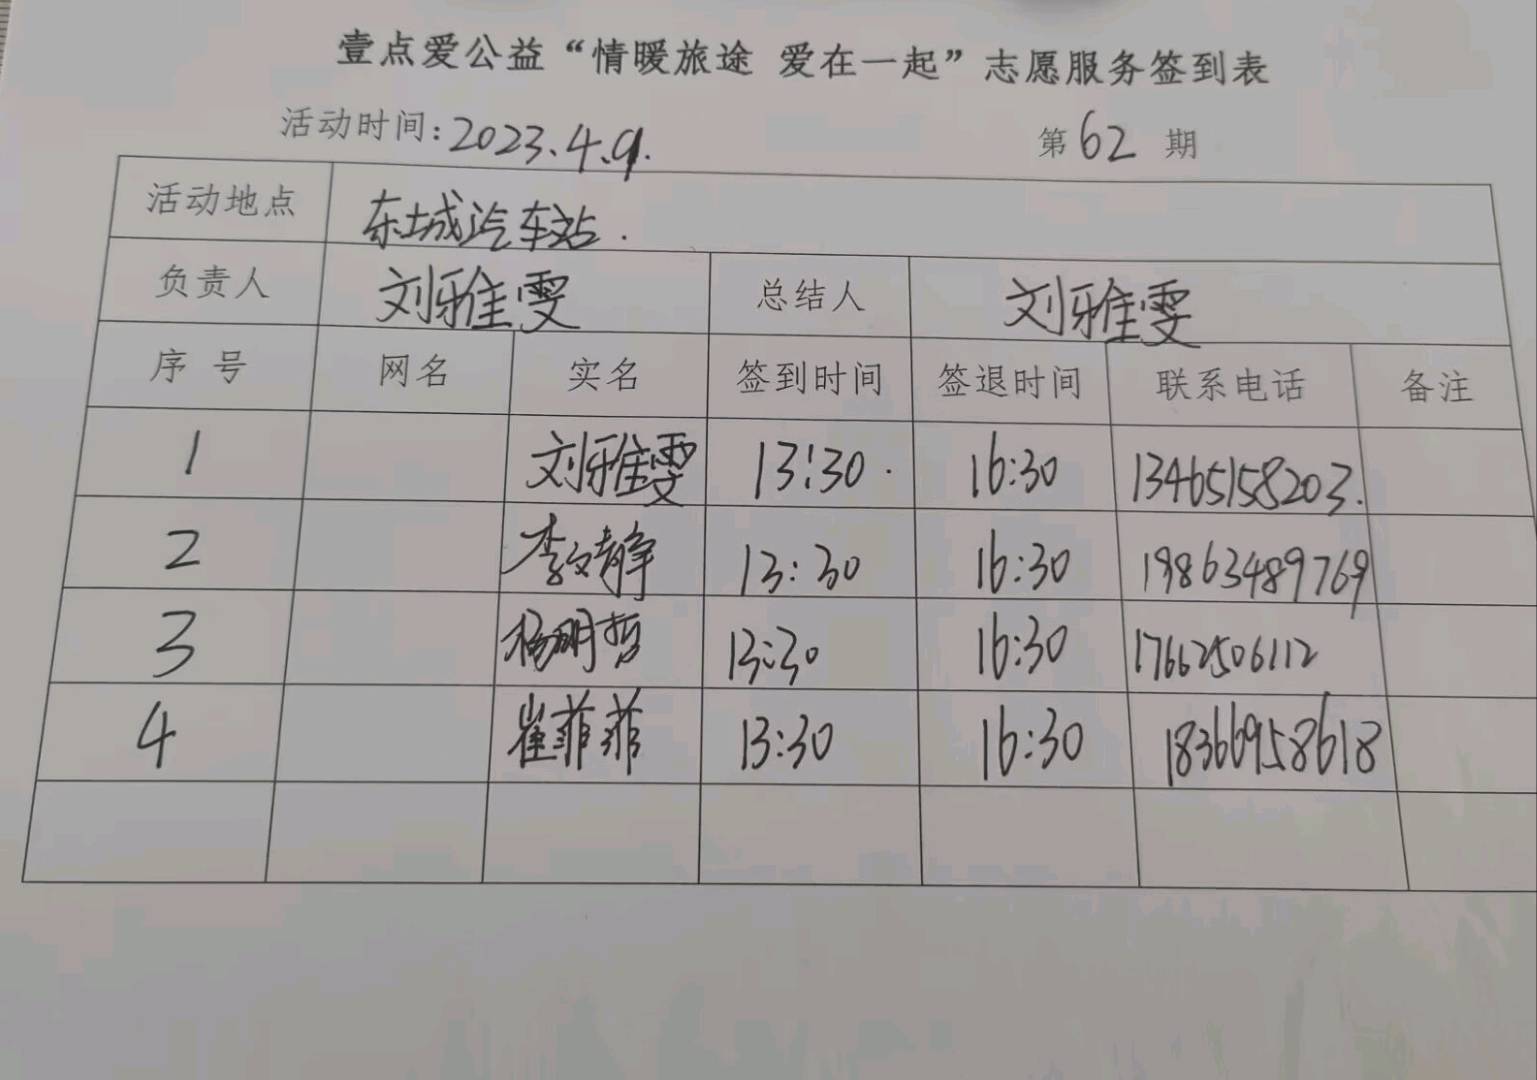 壹点爱公益“情暖旅途 爱在一起”志愿服务签到表
活动时间：2023.4.9. 第62期
活动地点 东城汽车站.
负责人 刘雅雯 总结人 刘雅雯
序 号 网名 实名 签到时间 签退时间 联系电话 备注
1 刘雅雯 13:30 16:30 13465158203.
2 李文静 13:30 16:30 19863489769
3 杨明哲 13:30 16:30 17662506112
4 崔菲菲 13:30 16:30 18366958618